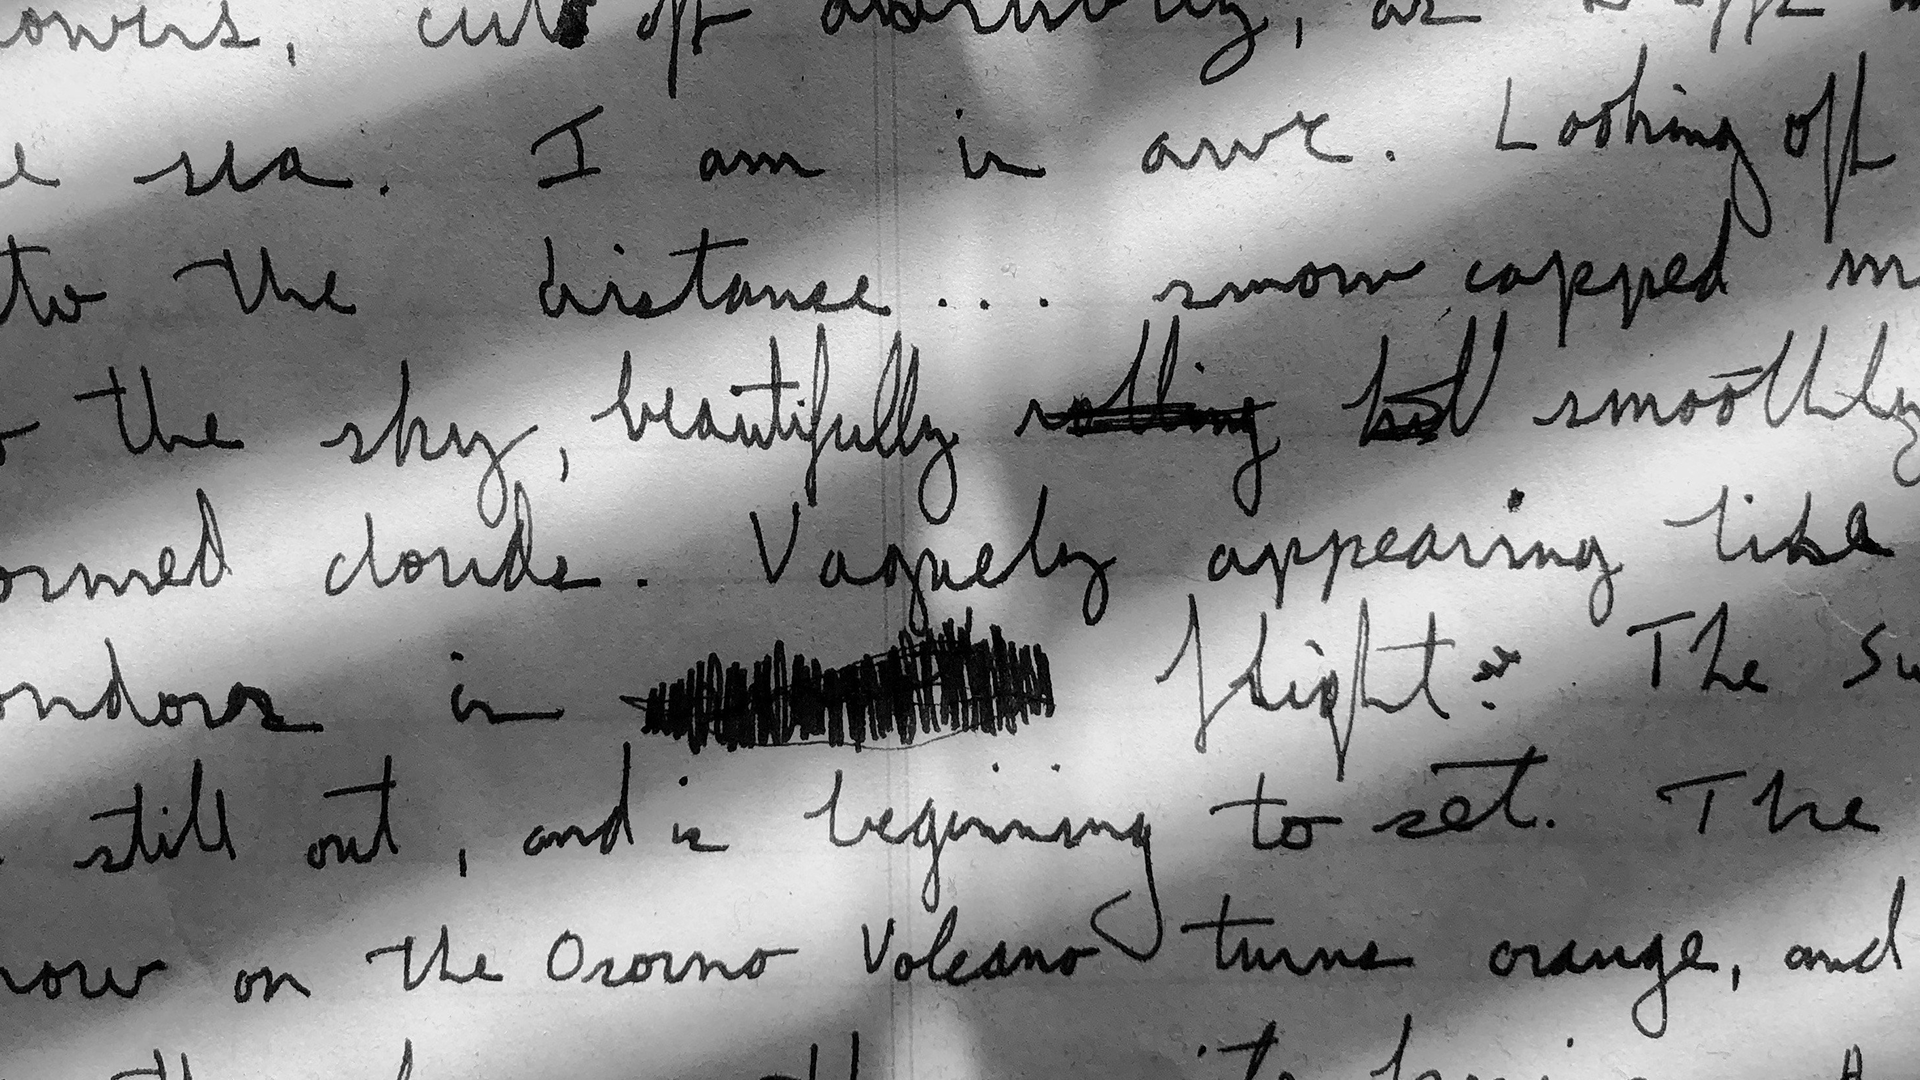 owers, cut off
e sea. I am in awe. Looking off
to the distance... snow capped m
o the sky, beautifully rolling but smoothly
ormed clouds. Vaguely appearing like
ondors in flight. The su
still out, and is beginning to set. The
now on the Osorno Volcano turns orange, and